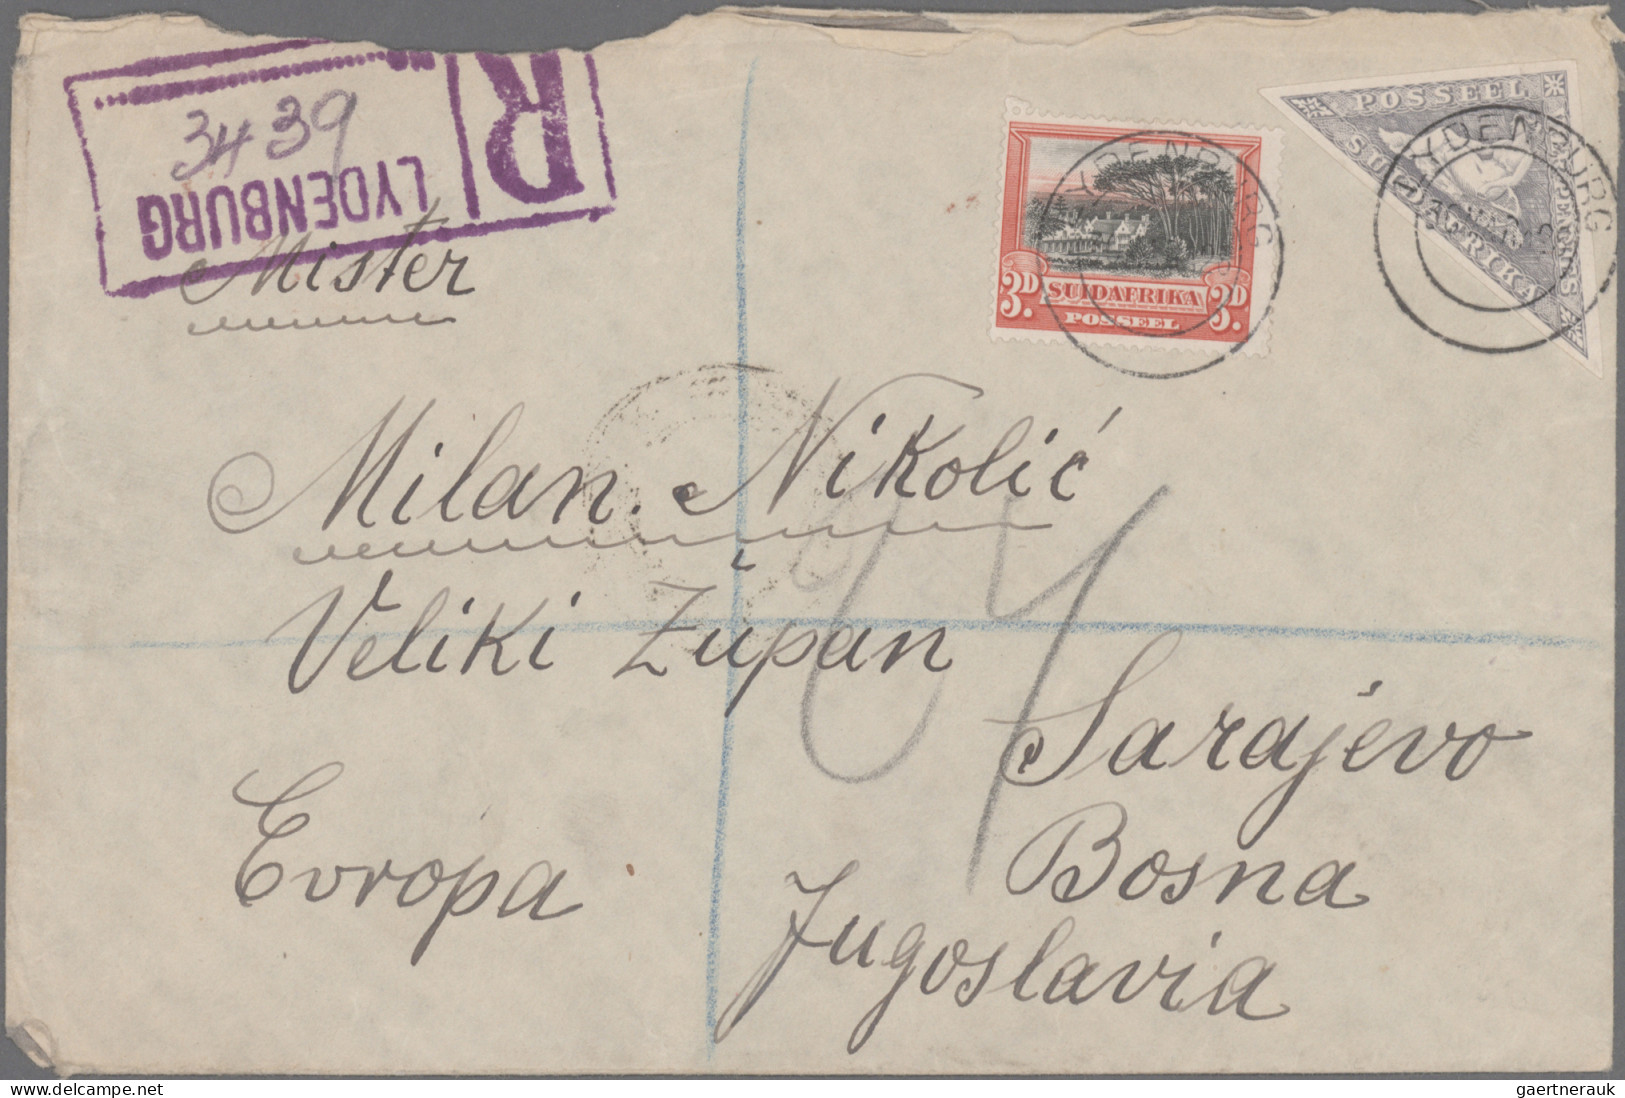 R
No
3439
LYDENBURG
Mister
Milan Nikolić
Veliki Župan
Sarajevo
Bosna
Jugoslavia
Evropa
3D. SUIDAFRIKA 3D.
POSSEEL
LYDENBURG
POSSEEL
LYDENBURG
gaertnerauk